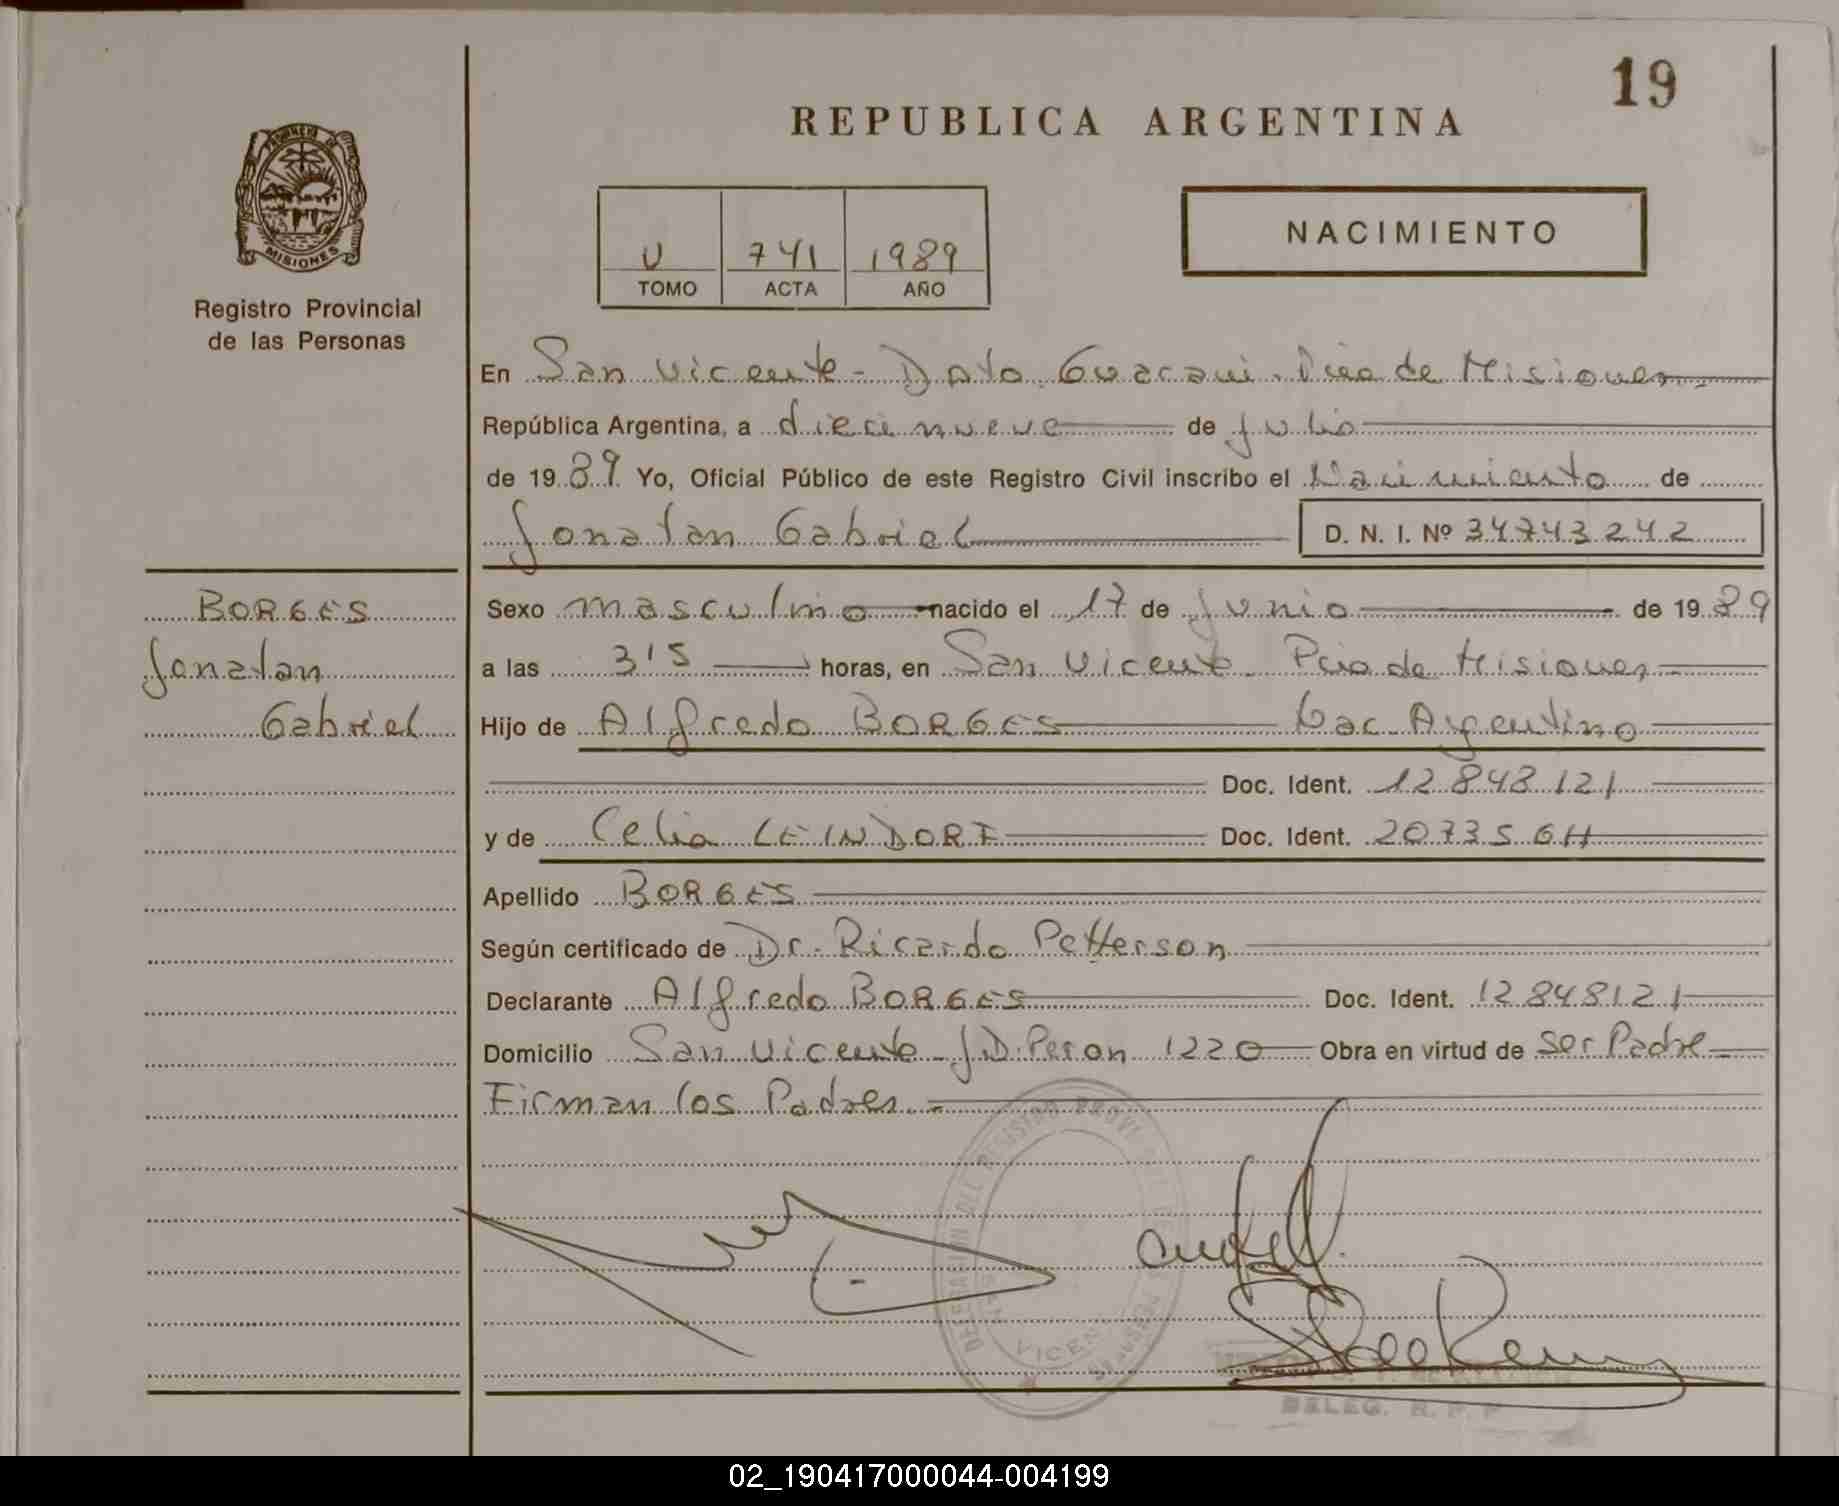 19
REPUBLICA ARGENTINA
PROVINCIA DE
MISIONES
Registro Provincial
de las Personas
U 741 1989
TOMO ACTA AÑO
NACIMIENTO
En San Vicente - Dpto Guarani. Pcia de Misiones
República Argentina, a diecinueve de Julio
de 1989 Yo, Oficial Público de este Registro Civil inscribo el Nacimiento de
Jonatan Gabriel D. N. I. Nº 34743242
BORGES
Jonatan
Gabriel
Sexo masculino nacido el 17 de Junio de 1989
a las 3'15 horas, en San Vicente Pcia de Misiones
Hijo de Alfredo BORGES Nac. Argentino
Doc. Ident. 12848121
y de Celia LEINDORF Doc. Ident.
Apellido BORGES
Según certificado de Dr. Ricardo Petterson
Declarante Alfredo BORGES Doc. Ident. 12848121
Domicilio San Vicente - J.D. Peron 1220 Obra en virtud de ser Padre
Firman los Padres.
DELEGACION DEL REGISTRO PROVINCIAL DE LAS PERSONAS
VICENTE
DELEG. R. P. P
02_190417000044-004199